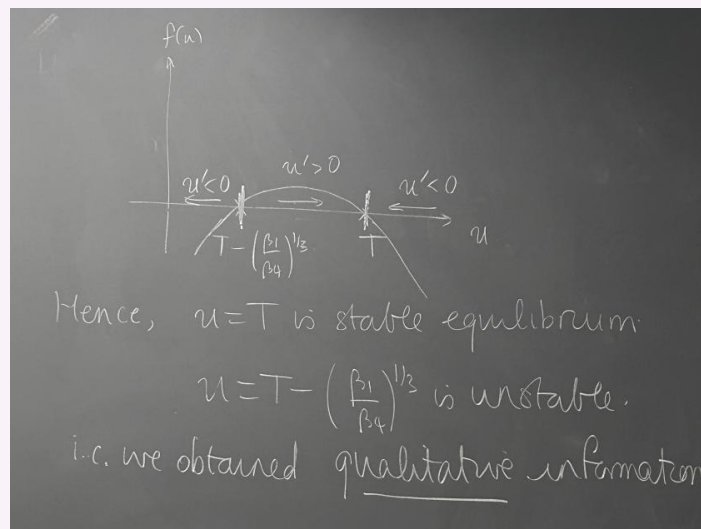 f(u)
u'<0 u'>0 u'<0
T-(β1/β4)^1/3 T u
Hence, u=T is stable equilibrium.
u=T-(β1/β4)^1/3 is unstable.
i.e. we obtained qualitative information